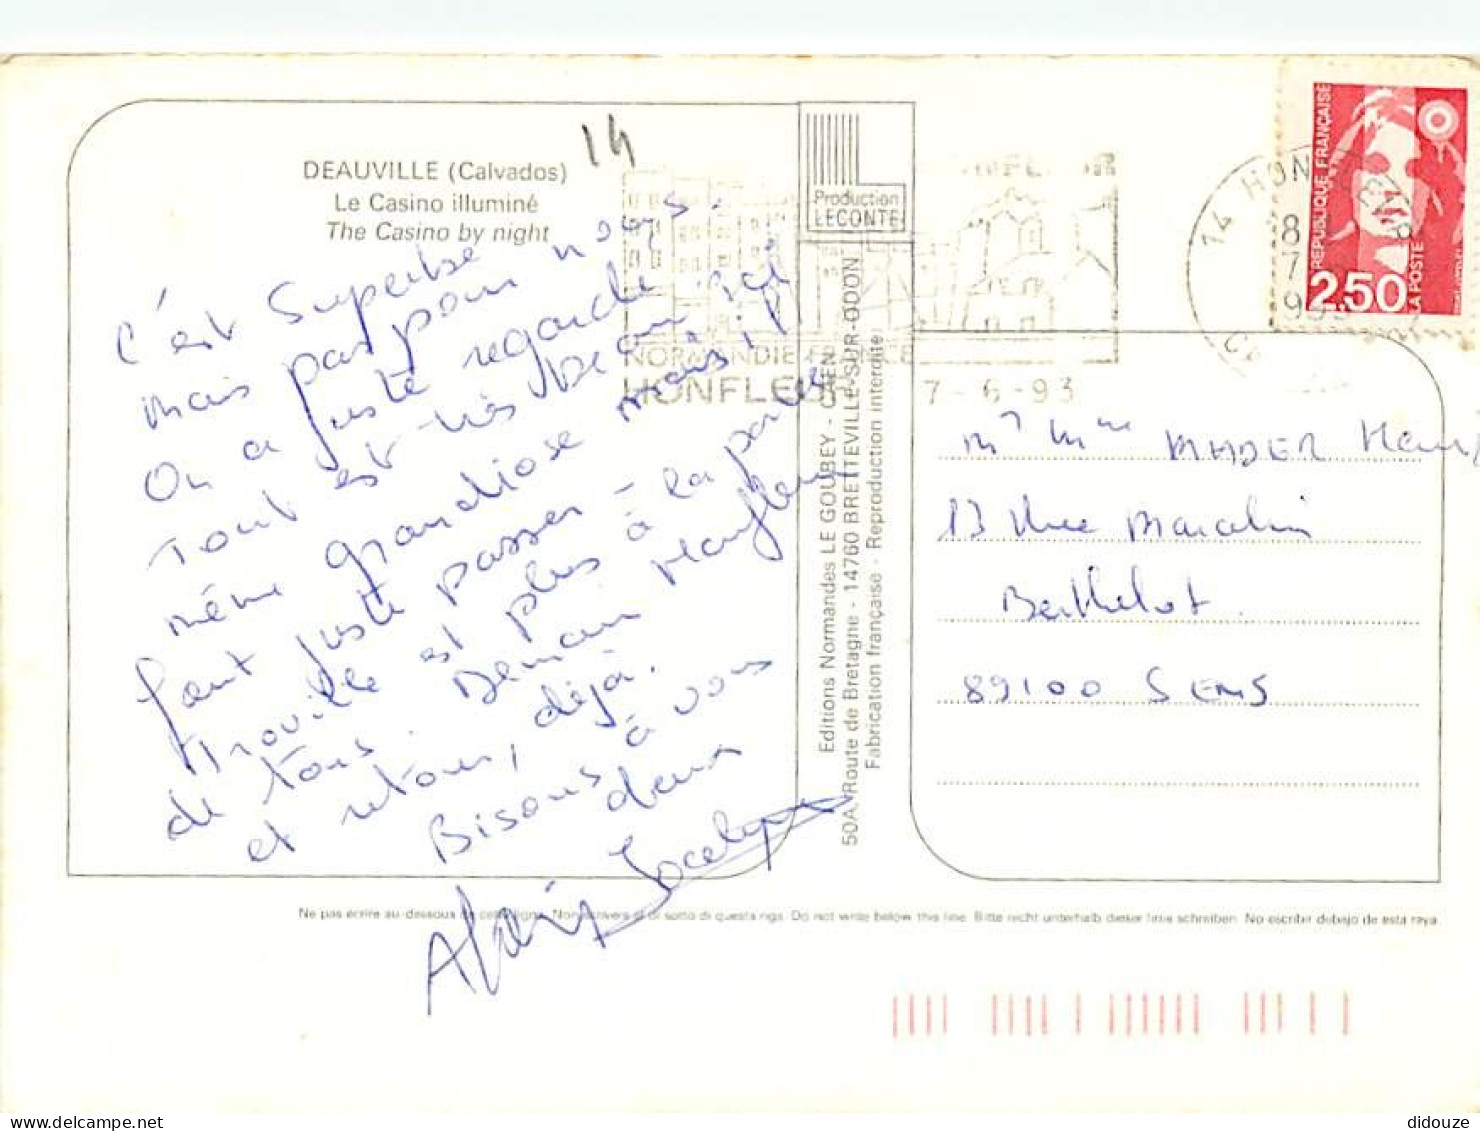 DEAUVILLE (Calvados)
Le Casino illuminé
The Casino by night
14
C'est Superbe
mais pas pour nous.
On a juste regardé
Tout est très beau ici
même grandiose mais il
faut juste passer -
Trouville est plus à la portée
de tous. Demain Honfleur
et retour, déjà.
Bisous à vous
deux
Alain Jocelyne
Production
LECONTE
NORMANDIE FRANCE
HONFLEUR
7-6-93
14 HONFLEUR
8
7
RÉPUBLIQUE FRANÇAISE
2,50
LA POSTE
Editions Normandes LE GOUBEY - CAEN
50A, Route de Bretagne - 14760 BRETTEVILLE-SUR-ODON
Fabrication française - Reproduction interdite
Mr Mme MADER Henri
13 Rue Marcelin
Berthelot
89100 SENS
Ne pas écrire au-dessous de cette ligne. Non scrivere al di sotto di questa riga. Do not write below this line. Bitte nicht unterhalb dieser linie schreiben. No escribir debajo de esta raya.
didouze